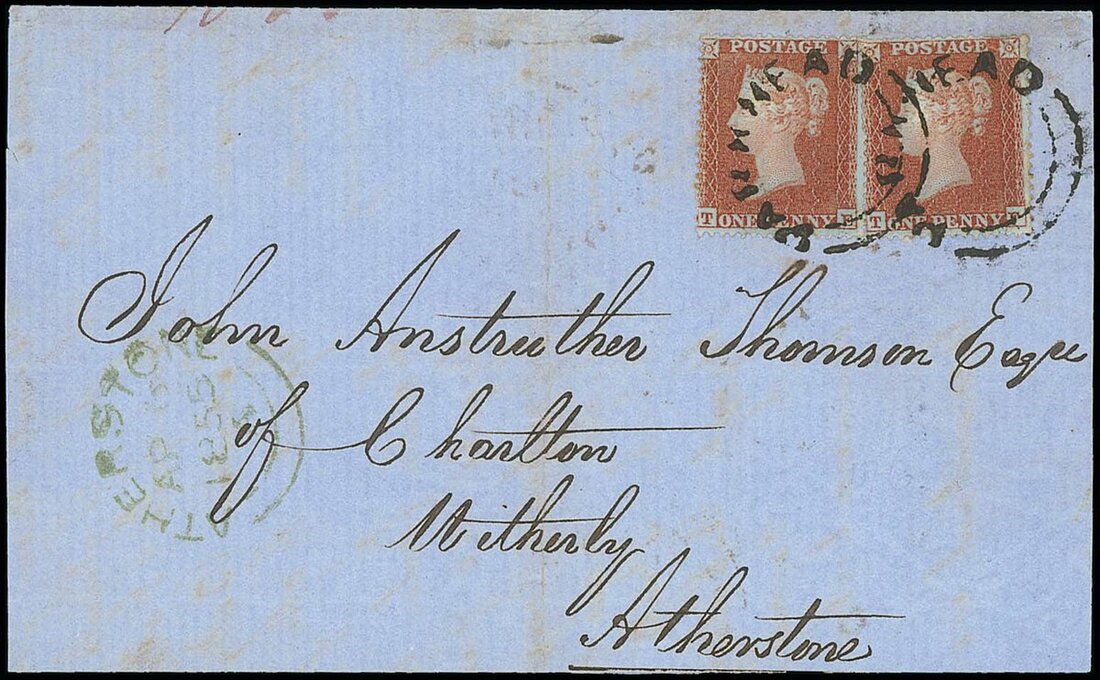 POSTAGE POSTAGE
T ONE PENNY E T ONE PENNY F
John Anstruther Thomson Esqre
of Charlton
Witherly
Atherstone
ATHERSTONE
AP
1855